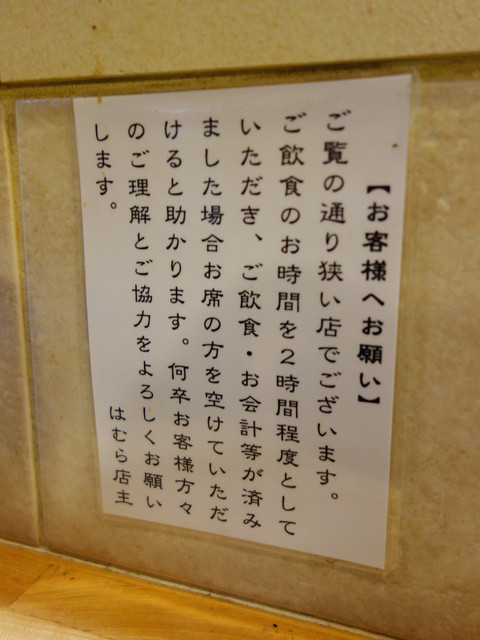 【お客様へお願い】
ご覧の通り狭い店でございます。
ご飲食のお時間を2時間程度として
いただき、ご飲食・お会計等が済み
ました場合お席の方を空けていただ
けると助かります。何卒お客様方々
のご理解とご協力をよろしくお願い
します。
はむら店主